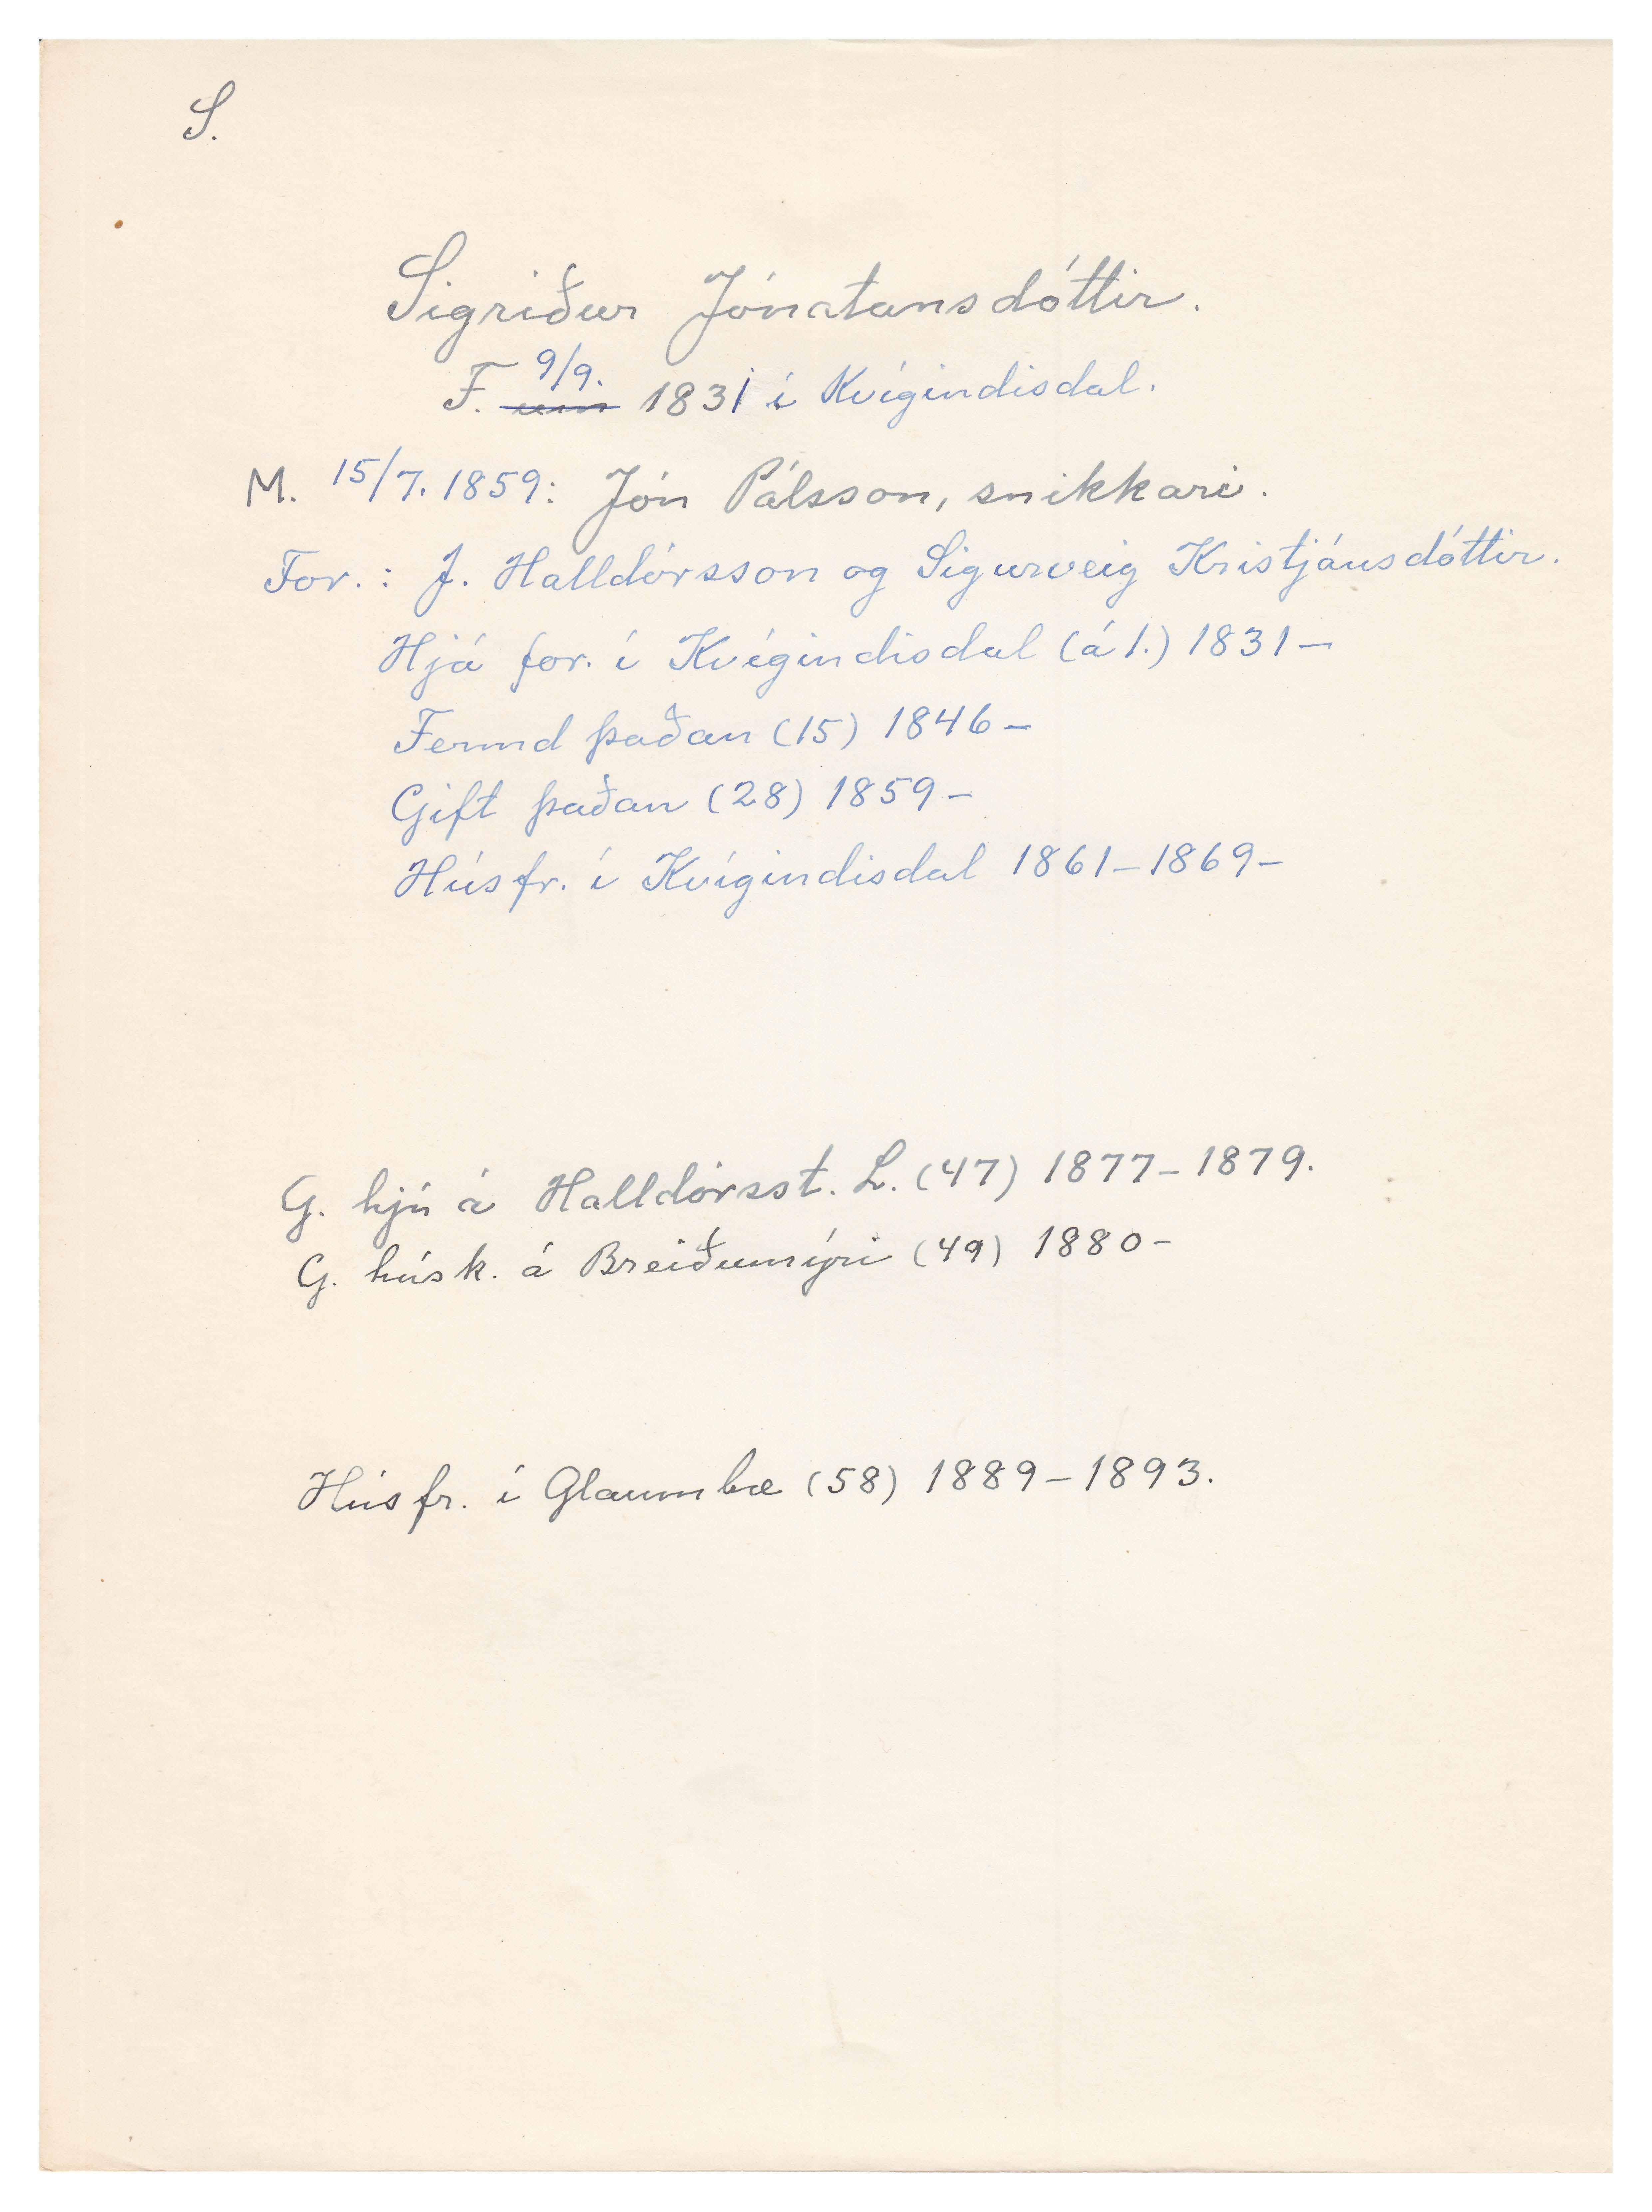 S.
Sigríður Jónatansdóttir.
F. 9/9. ~~um~~ 1831 í Kvígindisdal.
M. 15/7. 1859: Jón Pálsson, snikkari.
For.: J. Halldórsson og Sigurveig Kristjánsdóttir.
Hjá for. í Kvígindisdal (á 1.) 1831 –
Fermd þaðan (15) 1846 –
Gift þaðan (28) 1859 –
Húsfr. í Kvígindisdal 1861 – 1869 –
G. hjú á Halldórsst. L. (47) 1877 – 1879.
G. húsk. á Breiðumýri (49) 1880 –
Húsfr. í Glaumbæ (58) 1889 – 1893.